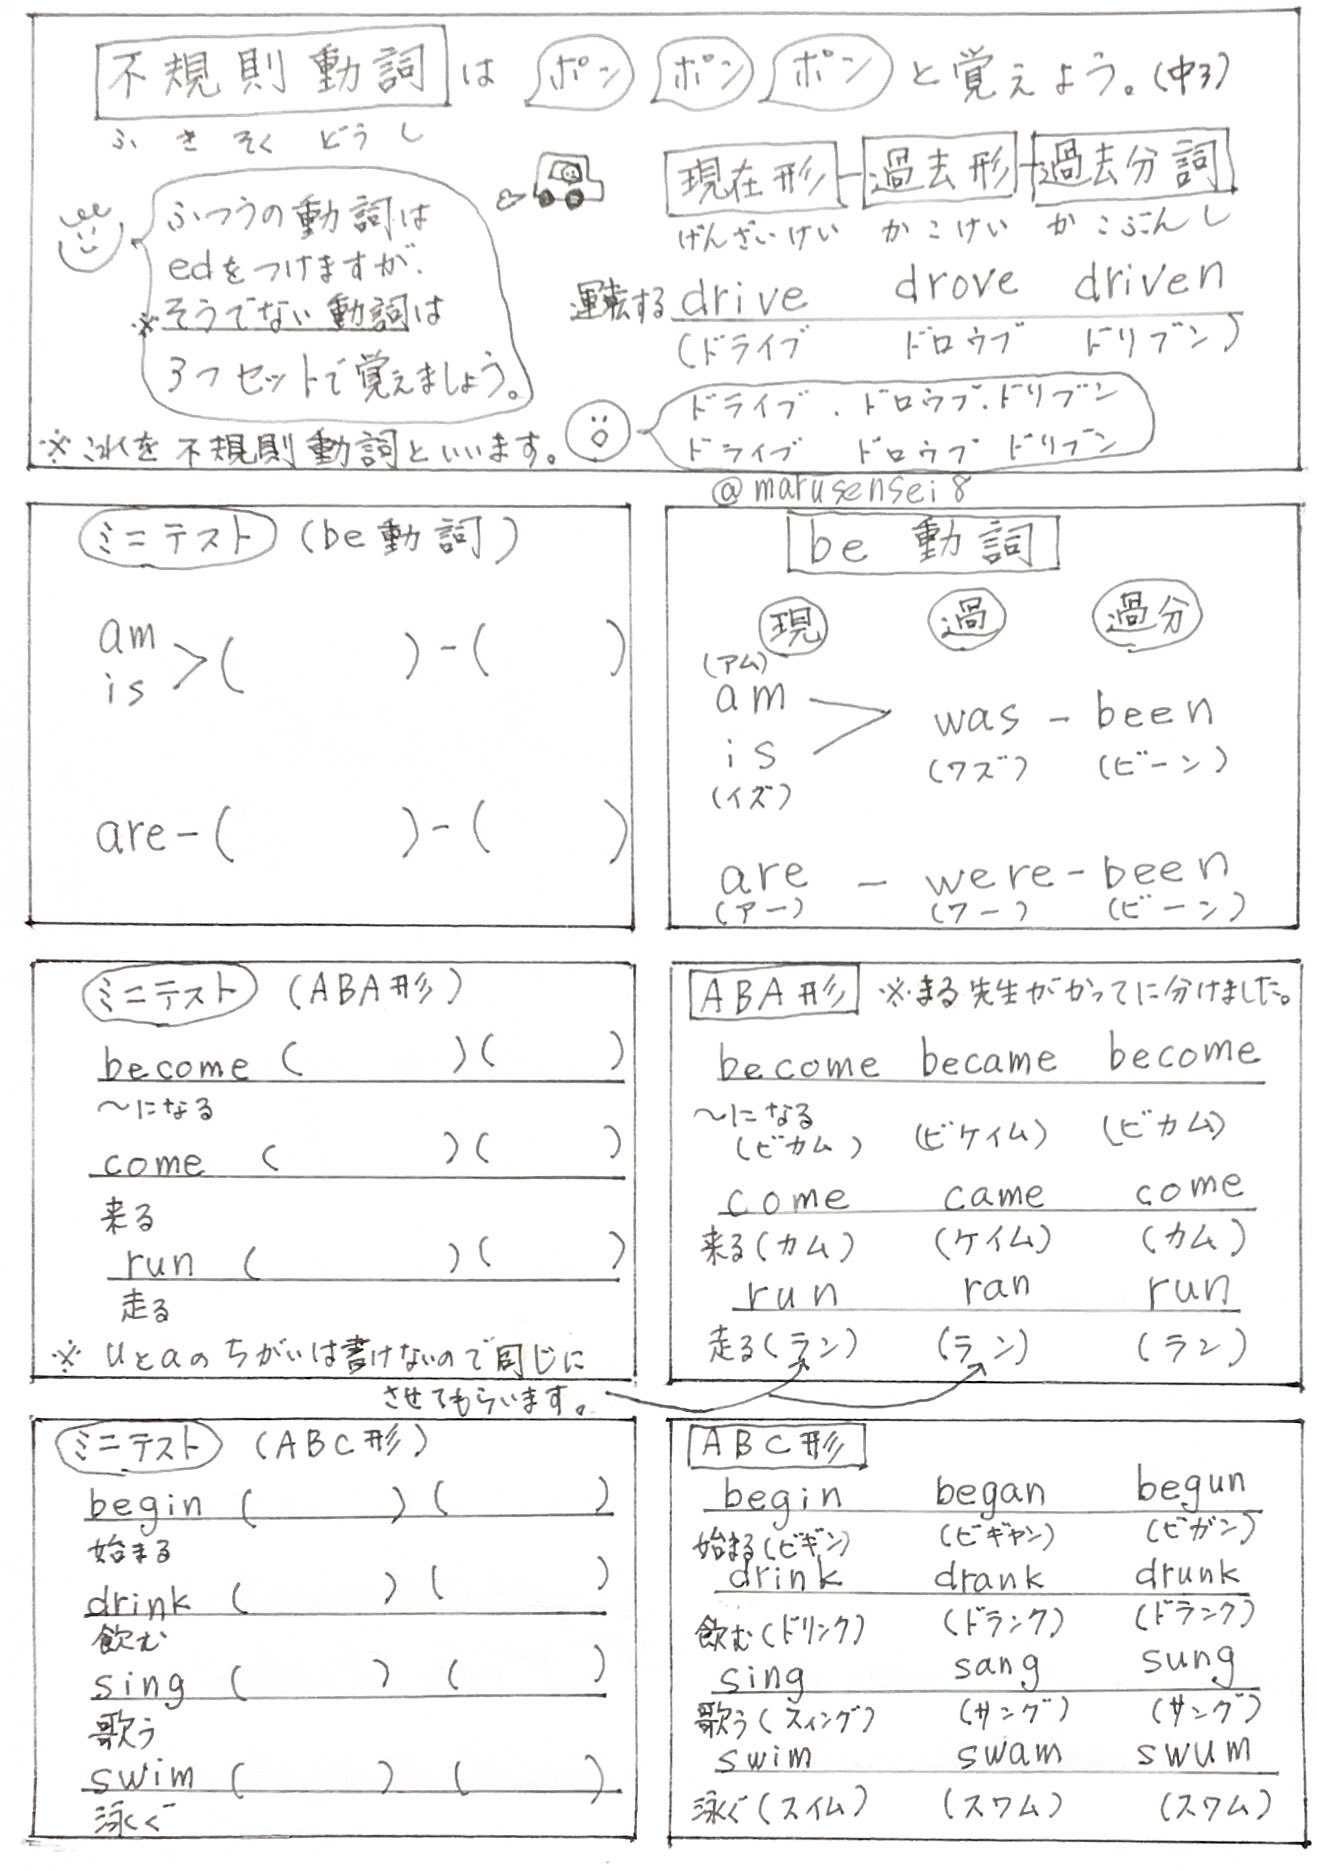 不規則動詞 は ポン ポン ポン と覚えよう。(中3)
ふ き そく どう し
現在形-過去形-過去分詞
げんざいけい かこけい かこぶんし
ふつうの動詞は
edをつけますが、
※そうでない動詞は
3つセットで覚えましょう。
運転する drive drove driven
(ドライブ ドロウブ ドリブン)
ドライブ、ドロウブ、ドリブン
ドライブ ドロウブ ドリブン
※これを不規則動詞といいます。
@marusensei8
ミニテスト (be動詞)
am
is >( )-( )
are-( )-( )
be 動詞
現 過 過分
(アム)
am
is
(イズ)
was - been
(ワズ) (ビーン)
are - were - been
(アー) (ワー) (ビーン)
ミニテスト (ABA形)
become ( )( )
~になる
come ( )( )
来る
run ( )( )
走る
※ uとaのちがいは書けないので同じに
させてもらいます。
ABA形 ※まる先生がかってに分けました。
become became become
~になる
(ビカム) (ビケイム) (ビカム)
come came come
来る(カム) (ケイム) (カム)
run ran run
走る(ラン) (ラン) (ラン)
ミニテスト (ABC形)
begin ( ) ( )
始まる
drink ( ) ( )
飲む
sing ( ) ( )
歌う
swim ( ) ( )
泳ぐ
ABC形
begin began begun
始まる(ビギン) (ビギャン) (ビガン)
drink drank drunk
飲む(ドリンク) (ドランク) (ドランク)
sing sang sung
歌う(スィング) (サング) (サング)
swim swam swum
泳ぐ(スイム) (スワム) (スワム)